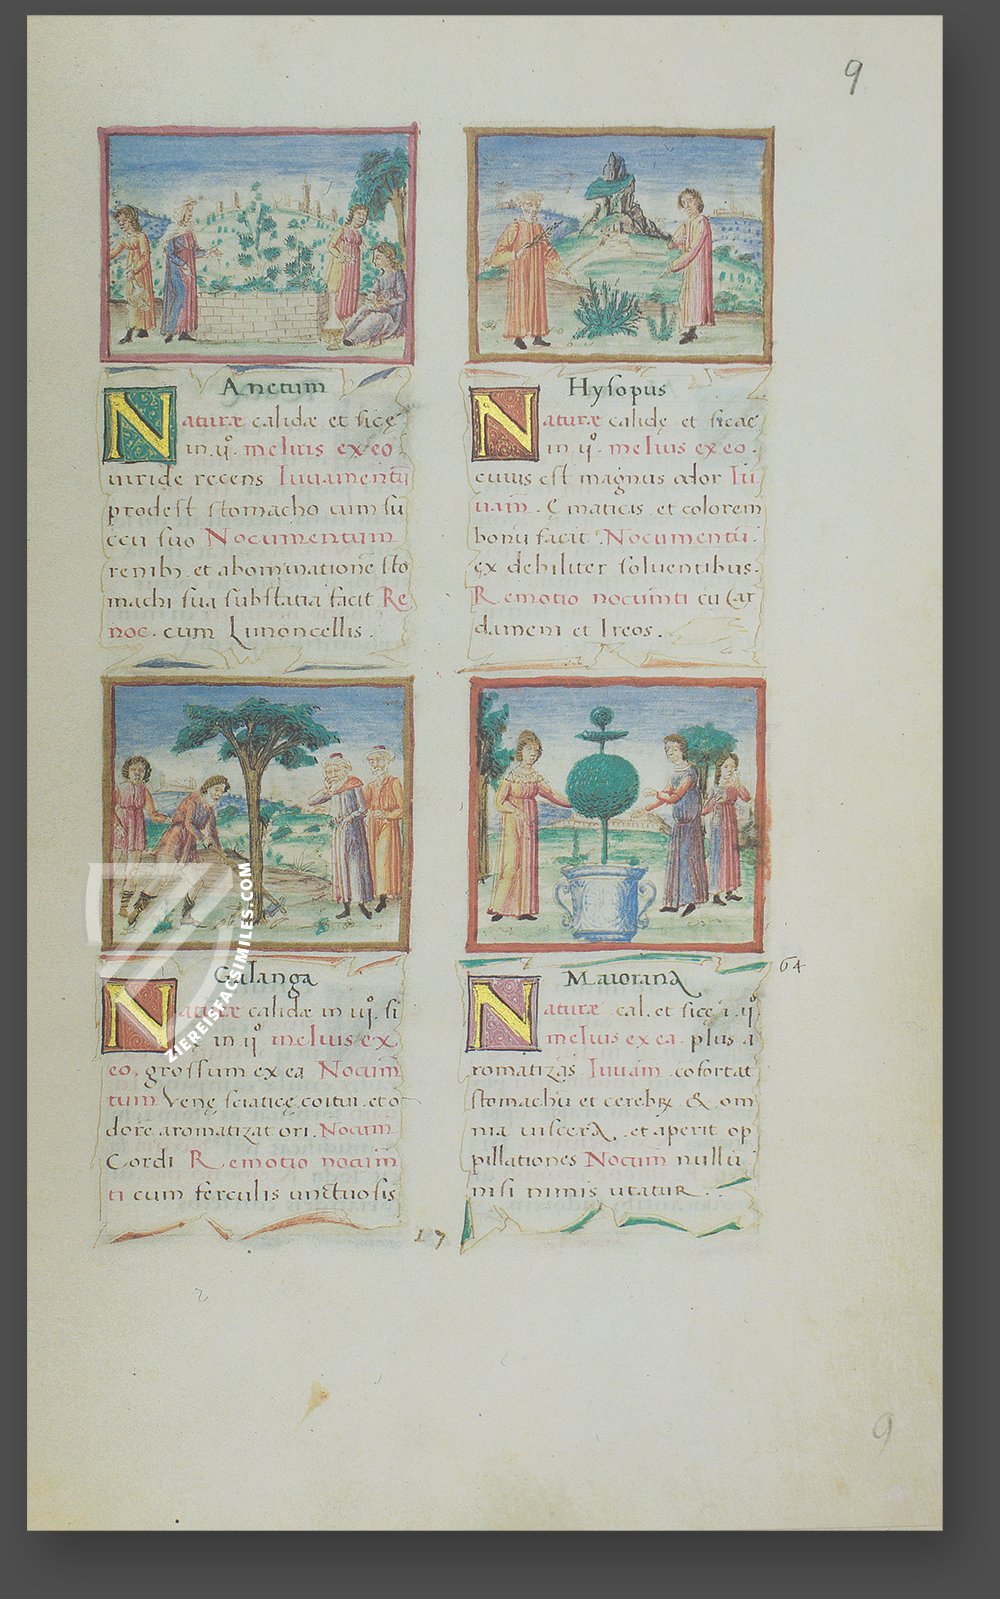 9
Anetum
Naturæ calidæ et sicçe
in .ijº. melius ex eo
uiride recens Iuuamentū
prodest stomacho cum su
ccu suo Nocumentum
renibꝫ et abominationē sto
machi sua substātia facit Re
noc. cum Limoncellis.
Hysopus
Naturæ calidę et sicæ
in ijº. melius ex eo.
cuius est magnus odor Iu
uam̄. maticis et colorem
bonū facit Nocumentū.
ex debiliter soluentibus.
Remotio nocuınti cū Car
dameni et Ireos.
Galanga
Naturæ calidæ in iijº. si
in ijº melius ex
eo. grossum ex ea Nocum̄
tum Venę sciaticę, coitui et o
dorē aromatizat ori. Nocum̄
Cordi Remotio nocum̄
ti cum ferculis unctuosis
Maiorana
Naturæ cal. et sicçę i. ijº
melius ex ea. plus a
romatizās Iuuam̄ cōfortat
stomachū et cerebꝝ & om
nia uiscera, et aperit op
pillationes Nocum̄ nullū
nisi nimis utatur.
64
17
9
ZIEREISFACSIMILES.COM